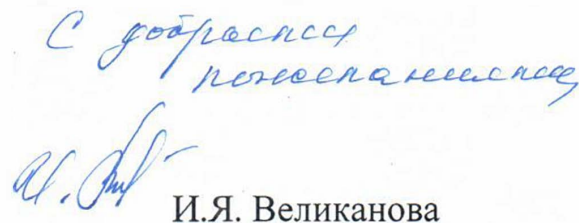 С добрыми
пожеланиями
И.Я. Великанова